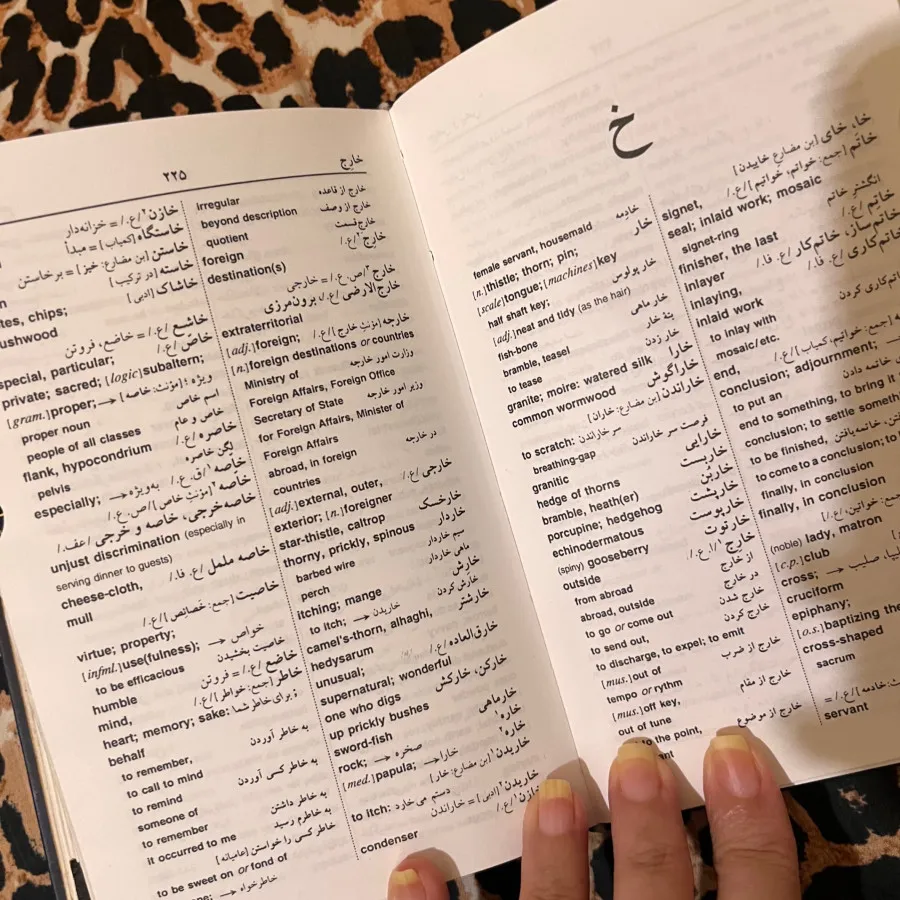 خ
خا، خای [بن مضارع خاییدن]
خاتَم [جمع: خواتم، خواتیم] /ع./
signet,
seal; inlaid work; mosaic
signet-ring انگشتر خاتم
finisher, the last خاتِم /ع./
inlayer خاتم‌ساز، خاتم‌کار /ع. فا./
inlaying, خاتم‌کاری /ع. فا./
inlaid work
to inlay with خاتم‌کاری کردن
mosaic/etc.
end, [جمع: خواتیم، کمیاب] /ع./
conclusion; adjournment;
to put an خاتمه دادن
end to something, to bring it
conclusion; to settle something
to be finished, خاتمه‌یافتن
to come to a conclusion; to
finally, in conclusion
finally, in conclusion
[جمع: خواتین، /ع./
(noble) lady, matron
[c.p.] club
cross; → صلیب
cruciform
epiphany;
[o.s.] baptizing the
cross-shaped
sacrum
خادمه] /ع./ =
servant
female servant, housemaid خادمه
[n.] thistle; thorn; pin; خار
[scale] tongue; [machines] key
half shaft key;
[adj.] neat and tidy (as the hair) خار پولوس
fish-bone خار ماهی
bramble, teasel پتهٔ خار
to tease خار زدن
granite; moire: watered silk خارا
common wormwood خاراگوش
خاراندن [بن مضارع: خاران]
to scratch: سر خاراندن
breathing-gap فرصت سر خاراندن
granitic خارایی
hedge of thorns خاربست
bramble, heath(er) خاربُن
porcupine; hedgehog خارپشت
echinodermatous خارپوست
(spiny) gooseberry خارتوت
outside خارِج¹ /ع./
from abroad از خارج
abroad, outside در خارج
to go or come out خارج شدن
to send out, خارج کردن
to discharge, to expel; to emit
[mus.] out of خارج از ضرب
tempo or rythm
[mus.] off key, خارج از مقام
out of tune
to the point, خارج از موضوع
خارج
۲۲۵
Irregular خارج از قاعده
beyond description خارج از وصف
quotient خارج قسمت
foreign خارج² /ع./
destination(s)
خارج³ /ص. ع./ = خارجی
خارج‌الارضی /ع./ برون‌مرزی
extraterritorial
[adj.] foreign; خارجه [مؤنثِ خارج] /ع./
[n.] foreign destinations or countries
Ministry of وزارت امور خارجه
Foreign Affairs, Foreign Office
Secretary of State وزیر امور خارجه
for Foreign Affairs, Minister of
Foreign Affairs
abroad, in foreign در خارجه
countries
[adj.] external, outer, خارجی /ع./
exterior; [n.] foreigner
star-thistle, caltrop خارخسک
thorny, prickly, spinous خاردار
barbed wire سیم خاردار
perch ماهی خاردار
itching; mange خارش
to itch; → خاریدن خارش کردن
camel's-thorn, alhaghi, خارشتر
hedysarum
unusual; خارق‌العاده /ع./
supernatural; wonderful
one who digs خارکن، خارکش
up prickly bushes
sword-fish خارماهی
rock; → صخره خاره¹
[med.] papula; → خارا خاره²
خاریدن¹ [بن مضارع: خار]
to itch: دستم می خارد
خاریدن² [ادبی] = خاراندن
condenser خازن¹ /ع./
خازن² /ع./ = خزانه‌دار
خاستگاه [کمیاب] = مبدأ
خاستن [بن مضارع: خیز] = برخاستن
خاسته [در ترکیب]
خاشاک [ادبی]
chips;
خاشع /ع./ = خاضع، فروتن
special, particular; خاصّ /ع./
private; sacred; [logic] subaltern;
[gram.] proper; → ویژه؛ [مؤنث: خاصه]
proper noun اسم خاص
people of all classes خاص و عام
flank, hypocondrium خاصره /ع./
pelvis لگن خاصره
especially; → به‌ویژه خاصه¹ /ق. ع./
خاصه² [مؤنثِ خاص] /ص. ع./
خاصه‌خرجی، خاصه و خرجی /عف./
unjust discrimination (especially in
serving dinner to guests)
cheese-cloth, خاصه ململ /ع. فا./
mull
خاصیت [جمع: خصائص] /ع./
virtue; property;
[infml.] use(fulness); → خواص
to be efficacious خاصیت بخشیدن
humble خاضع /ع./ = فروتن
mind, خاطر [جمع: خواطر] /ع./
heart; memory; sake: برای خاطر شما
behalf
to remember, به خاطر آوردن
to call to mind
to remind به خاطر کسی آوردن
someone of
to remember به خاطر داشتن
it occurred to me به خاطرم رسید
خاطر کسی را خواستن [عامیانه]
to be sweet on or fond of
→ خاطرخواه